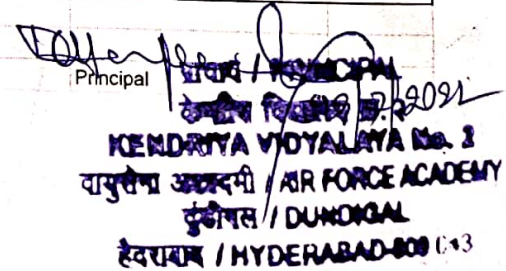 Principal
प्राचार्य / PRINCIPAL
केन्द्रीय विद्यालय
KENDRIYA VIDYALAYA No.
वायुसेना अकादमी / AIR FORCE ACADEMY
दुंडीगल / DUNDIGAL
हैदराबाद / HYDERABAD